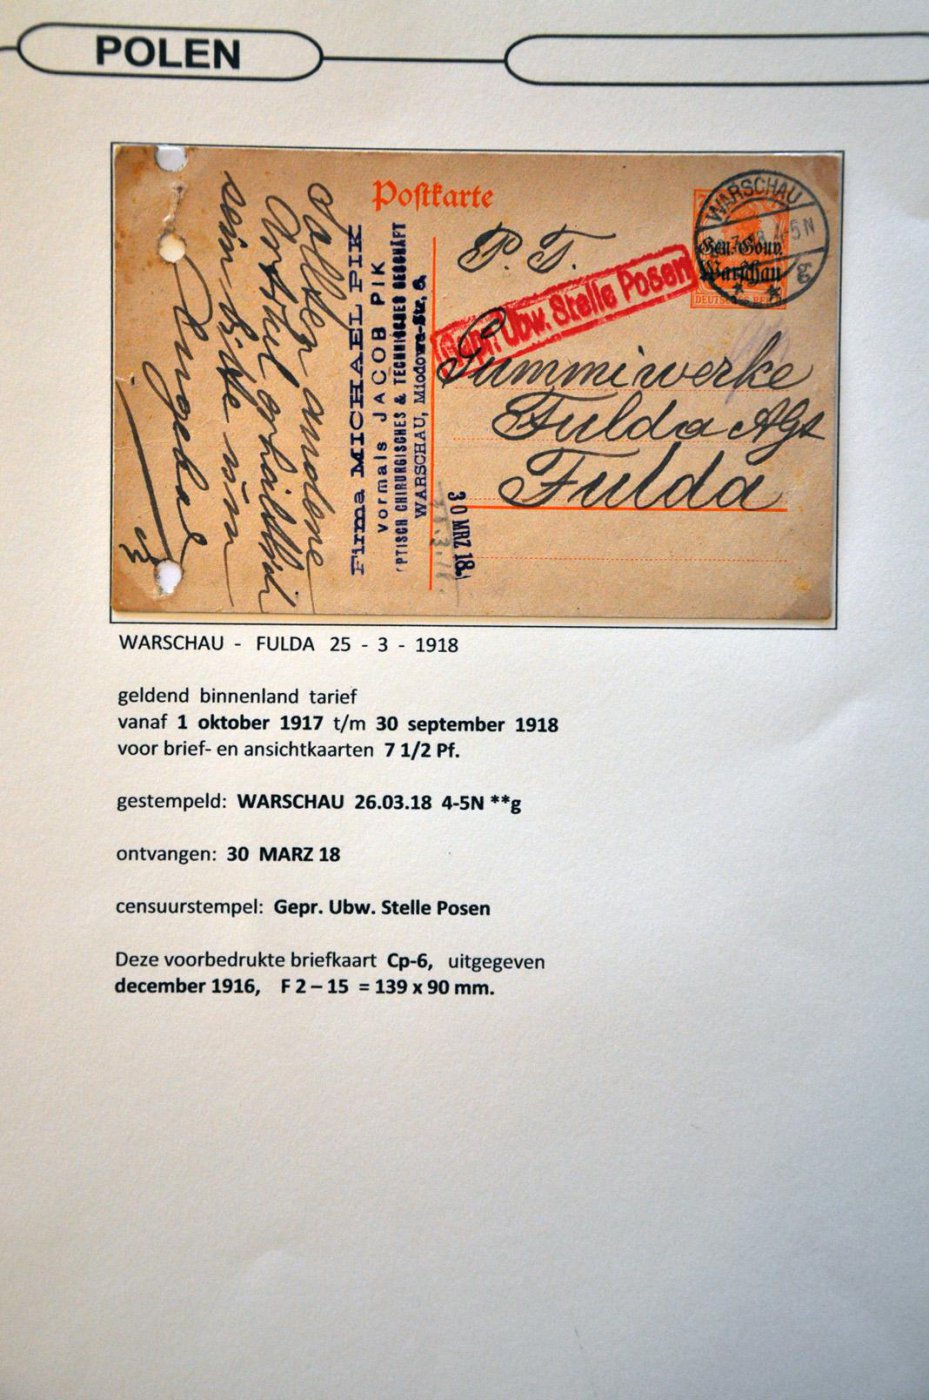 POLEN
Postkarte
WARSCHAU
4-5N
g
Gen.-Gouv.
Warschau
DEUTSCHES REICH
P. T.
Gepr. Ubw. Stelle Posen
Gummiwerke
Fulda AGs
Fulda
30 MRZ 18.
Firma MICHAEL PIK
vormals JACOB PIK
PTISCH CHIRURGISCHES & TECHNISCHES GESCHÄFT
WARSCHAU, Miodowa-Str. 6.
Sollten andere
Artikel erhältlich
sein bitte um
Angebot
WARSCHAU - FULDA 25 - 3 - 1918
geldend binnenland tarief
vanaf 1 oktober 1917 t/m 30 september 1918
voor brief- en ansichtkaarten 7 1/2 Pf.
gestempeld: WARSCHAU 26.03.18 4-5N **g
ontvangen: 30 MARZ 18
censuurstempel: Gepr. Ubw. Stelle Posen
Deze voorbedrukte briefkaart Cp-6, uitgegeven
december 1916, F 2 – 15 = 139 x 90 mm.